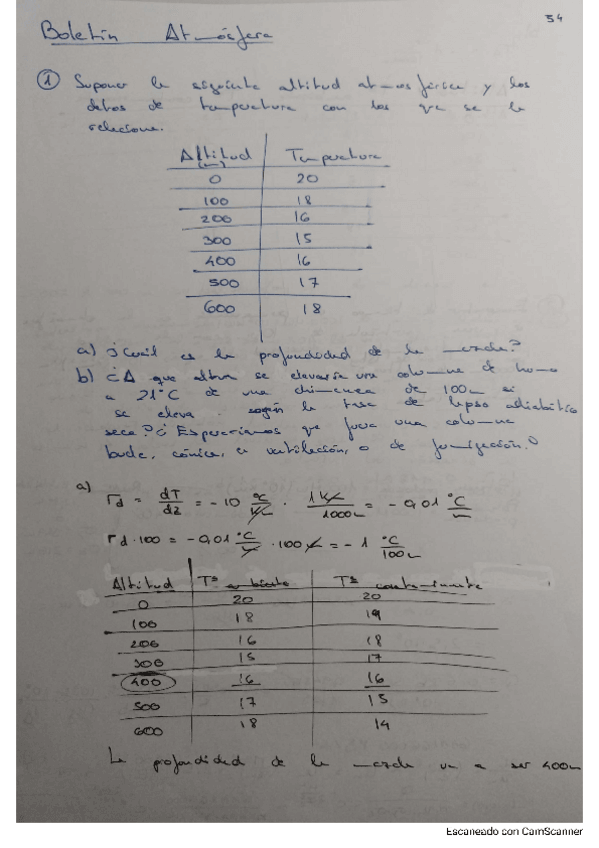 54
Boletín Atmósfera
① Suponer la siguiente altitud atmosférica y los
datos de temperatura con los que se la
relaciona.
Altitud Temperatura
(m)
0 20
100 18
200 16
300 15
400 16
500 17
600 18
a) ¿Cuál es la profundidad de la mezcla?
b) ¿A que altura se elevaría una columna de humo
a 21°C de una chimenea de 100m si
se eleva según la tasa de lapso adiabático
seca? ¿Esperaríamos que fuera una columna
bucle, cónica, a ventilación, o de fumigación?
a) Γd = dT/dz = -10 °C/Km · 1 Km/1000m = -0,01 °C/m
Γd·100 = -0,01 °C/m · 100m = -1 °C/100m
Altitud Tª ambiente Tª contaminante
0 20 20
100 18 19
200 16 18
300 15 17
400 16 16
500 17 15
600 18 14
La profundidad de la mezcla va a ser 400m
Escaneado con CamScanner